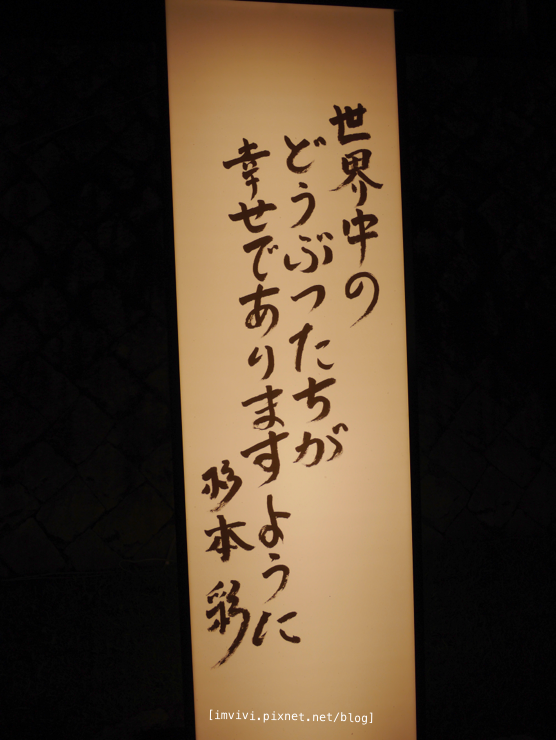 世界中の
どうぶつたちが
幸せでありますように
杉本彩
[imvivi.pixnet.net/blog]